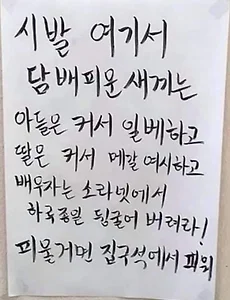 시발 여기서
담배피운새끼는
아들은 커서 일베하고
딸은 커서 메갈 여시하고
배우자는 소라넷에서
하루종일 뒹굴어 버려라!
피울거면 집구석에서 펴워